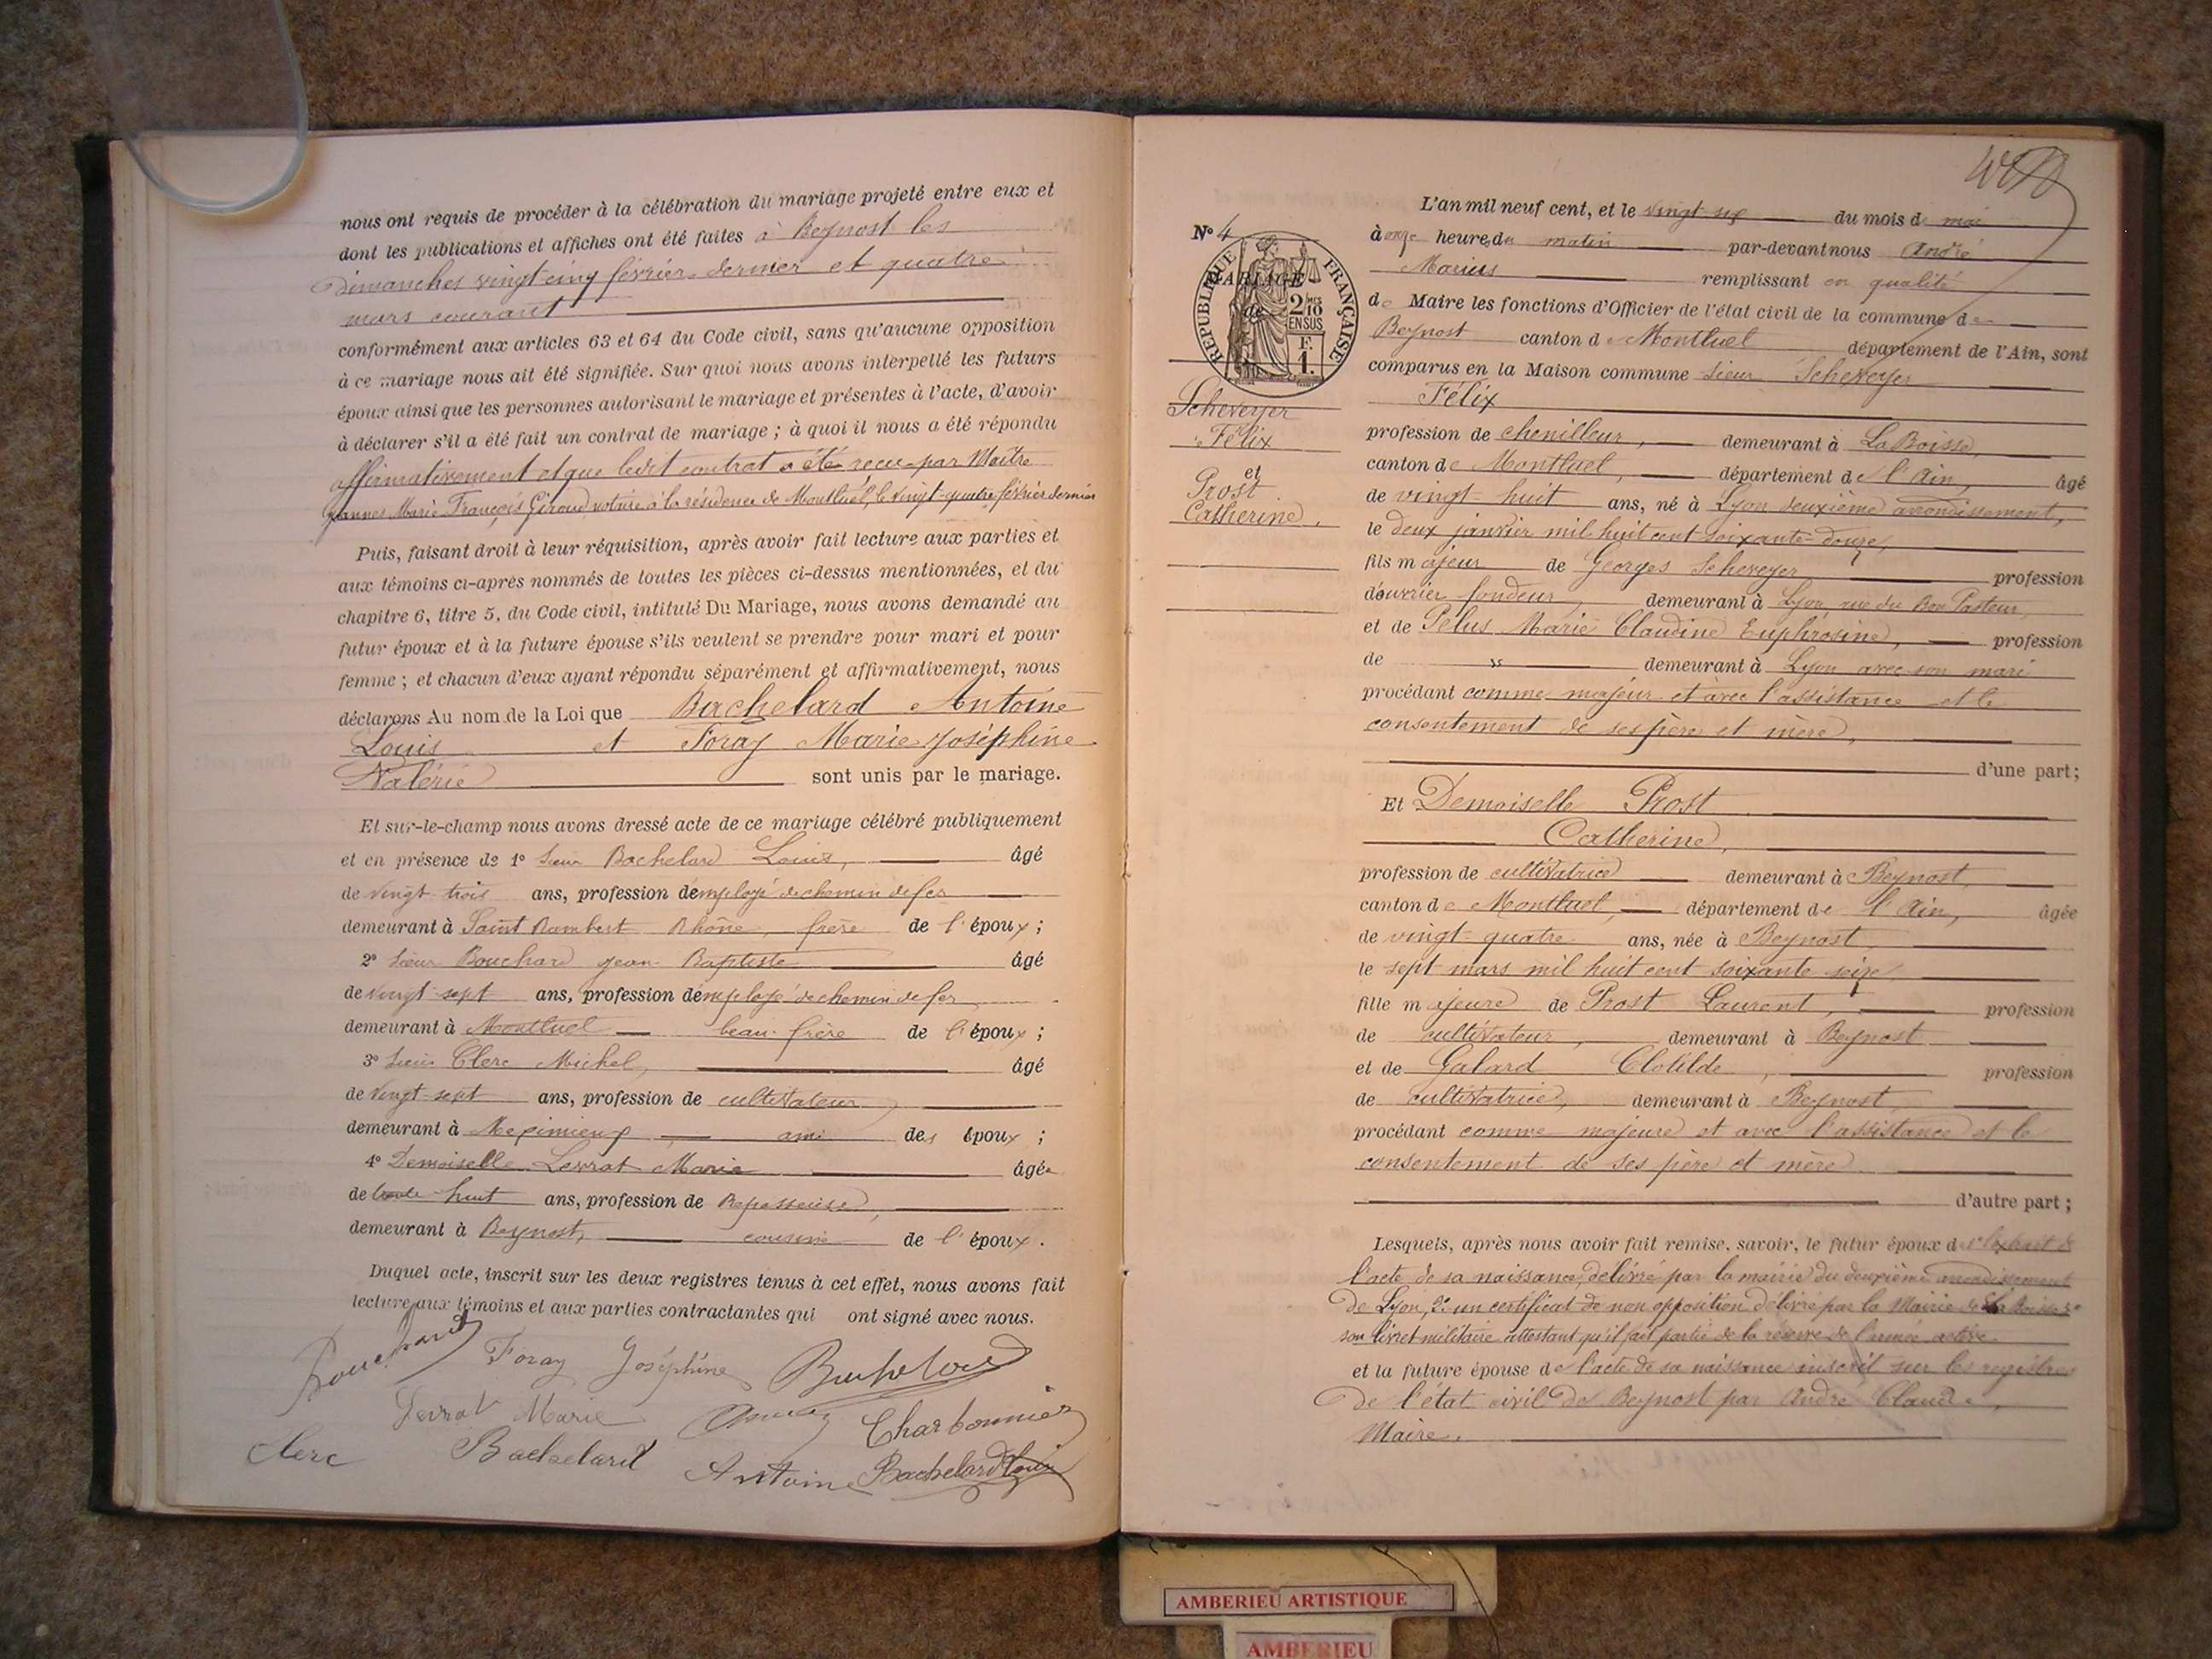 nous ont requis de procéder à la célébration du mariage projeté entre eux et
dont les publications et affiches ont été faites à Beynost les
Dimanches vingt cinq février dernier et quatre
mars courant
conformément aux articles 63 et 64 du Code civil, sans qu'aucune opposition
à ce mariage nous ait été signifiée. Sur quoi nous avons interpellé les futurs
époux ainsi que les personnes autorisant le mariage et présentes à l'acte, d'avoir
à déclarer s'il a été fait un contrat de mariage ; à quoi il nous a été répondu
affirmativement et que ledit contrat a été reçu par Maître
Marie François Giroud notaire à la résidence de Montluel, le vingt-quatre février dernier
Puis, faisant droit à leur réquisition, après avoir fait lecture aux parties et
aux témoins ci-après nommés de toutes les pièces ci-dessus mentionnées, et du
chapitre 6, titre 5, du Code civil, intitulé Du Mariage, nous avons demandé au
futur époux et à la future épouse s'ils veulent se prendre pour mari et pour
femme ; et chacun d'eux ayant répondu séparément et affirmativement, nous
déclarons Au nom de la Loi que Bachelard Antoine
Louis et Foray Marie Joséphine
Valérie sont unis par le mariage.
Et sur-le-champ nous avons dressé acte de ce mariage célébré publiquement
et en présence de 1° Sieur Bachelard Louis, âgé
de vingt trois ans, profession d'employé de chemin de fer
demeurant à Saint Rambert Rhône, frère de l'époux ;
2° Sieur Bouchard Jean Baptiste âgé
de vingt-sept ans, profession d'employé de chemin de fer
demeurant à Montluel beau-frère de l'époux ;
3° Sieur Clerc Michel, âgé
de vingt-sept ans, profession de cultivateur,
demeurant à Meximieux, ami des époux ;
4° Demoiselle Levrat Marie âgée
de trente-huit ans, profession de Repasseuse,
demeurant à Beynost, cousine de l'époux.
Duquel acte, inscrit sur les deux registres tenus à cet effet, nous avons fait
lecture aux témoins et aux parties contractantes qui ont signé avec nous.
Bouchard Foray Joséphine Bachelard
Levrat Marie Charbonnier
Clerc Bachelard Antoine Bachelard Louis
N° 4
MARIAGE
de
REPUBLIQUE FRANÇAISE
2/10
EN SUS
F.
1.
Scheveyer
Félix
et
Prost
Catherine,
L'an mil neuf cent, et le vingt-six du mois de mai
à onze heures du matin par-devant nous André
Marius remplissant en qualité
de Maire les fonctions d'Officier de l'état civil de la commune de
Beynost canton de Montluel département de l'Ain, sont
comparus en la Maison commune Sieur Scheveyer
Félix
profession de chenilleur, demeurant à La Boisse,
canton de Montluel, département de l'Ain, âgé
de vingt-huit ans, né à Lyon deuxième arrondissement,
le deux janvier mil huit cent soixante-douze,
fils majeur de Georges Scheveyer profession
d'ouvrier fondeur, demeurant à Lyon, rue du Bon Pasteur,
et de Pelus Marie Claudine Euphrosine, profession
de demeurant à Lyon avec son mari
procédant comme majeur et avec l'assistance et le
consentement de ses père et mère,
d'une part;
Et Demoiselle Prost
Catherine,
profession de cultivatrice demeurant à Beynost,
canton de Montluel, département de l'Ain, âgée
de vingt-quatre ans, née à Beynost,
le sept mars mil huit cent soixante seize
fille majeure de Prost Laurent, profession
de cultivateur, demeurant à Beynost
et de Galard Clotilde, profession
de cultivatrice, demeurant à Beynost,
procédant comme majeure et avec l'assistance et le
consentement de ses père et mère
d'autre part ;
Lesquels, après nous avoir fait remise, savoir, le futur époux de 1° l'extrait de
l'acte de sa naissance, délivré par la mairie du deuxième arrondissement
de Lyon, 2° un certificat de non opposition délivré par la Mairie de La Boisse 3°
son livret militaire attestant qu'il fait partie de la réserve de l'armée active
et la future épouse de l'acte de sa naissance inscrit sur les registres
de l'état civil de Beynost par André Claude,
Maire.
AMBERIEU ARTISTIQUE
AMBERIEU